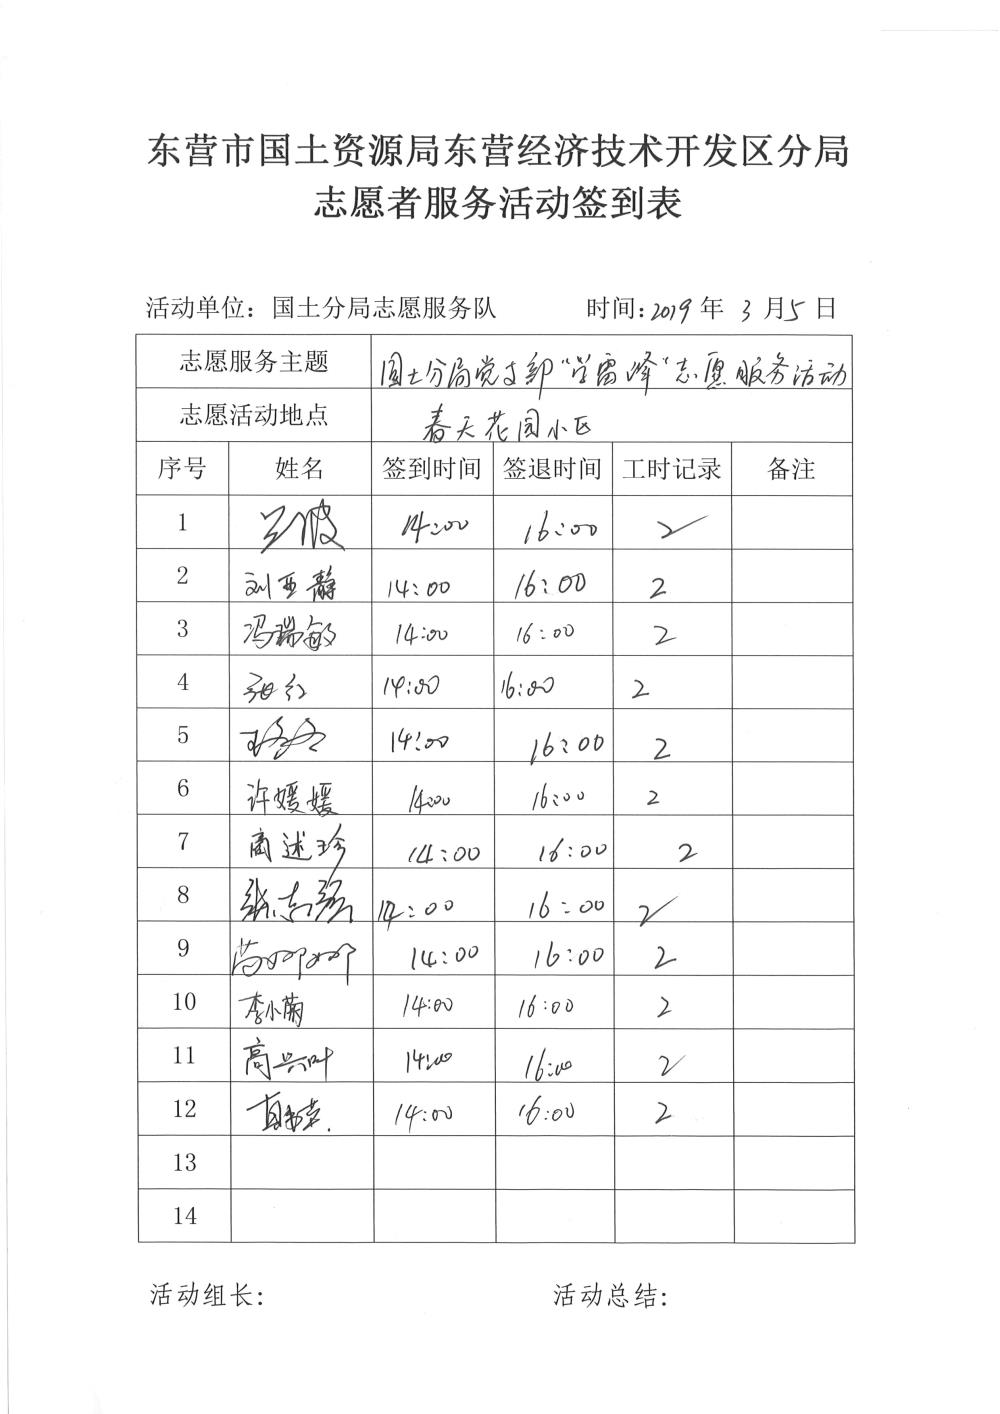 东营市国土资源局东营经济技术开发区分局
志愿者服务活动签到表
活动单位：国土分局志愿服务队 时间：2019 年 3 月 5 日
志愿服务主题 国土分局党支部“学雷峰”志愿服务活动
志愿活动地点 春天花园小区
序号 姓名 签到时间 签退时间 工时记录 备注
1 14:00 16:00 2
2 刘亚静 14:00 16:00 2
3 冯瑞敏 14:00 16:00 2
4 张红 14:00 16:00 2
5 14:00 16:00 2
6 许媛媛 14:00 16:00 2
7 商述珍 14:00 16:00 2
8 张志强 14:00 16:00 2
9 14:00 16:00 2
10 李小菊 14:00 16:00 2
11 高兴叶 14:00 16:00 2
12 14:00 16:00 2
13
14
活动组长： 活动总结：